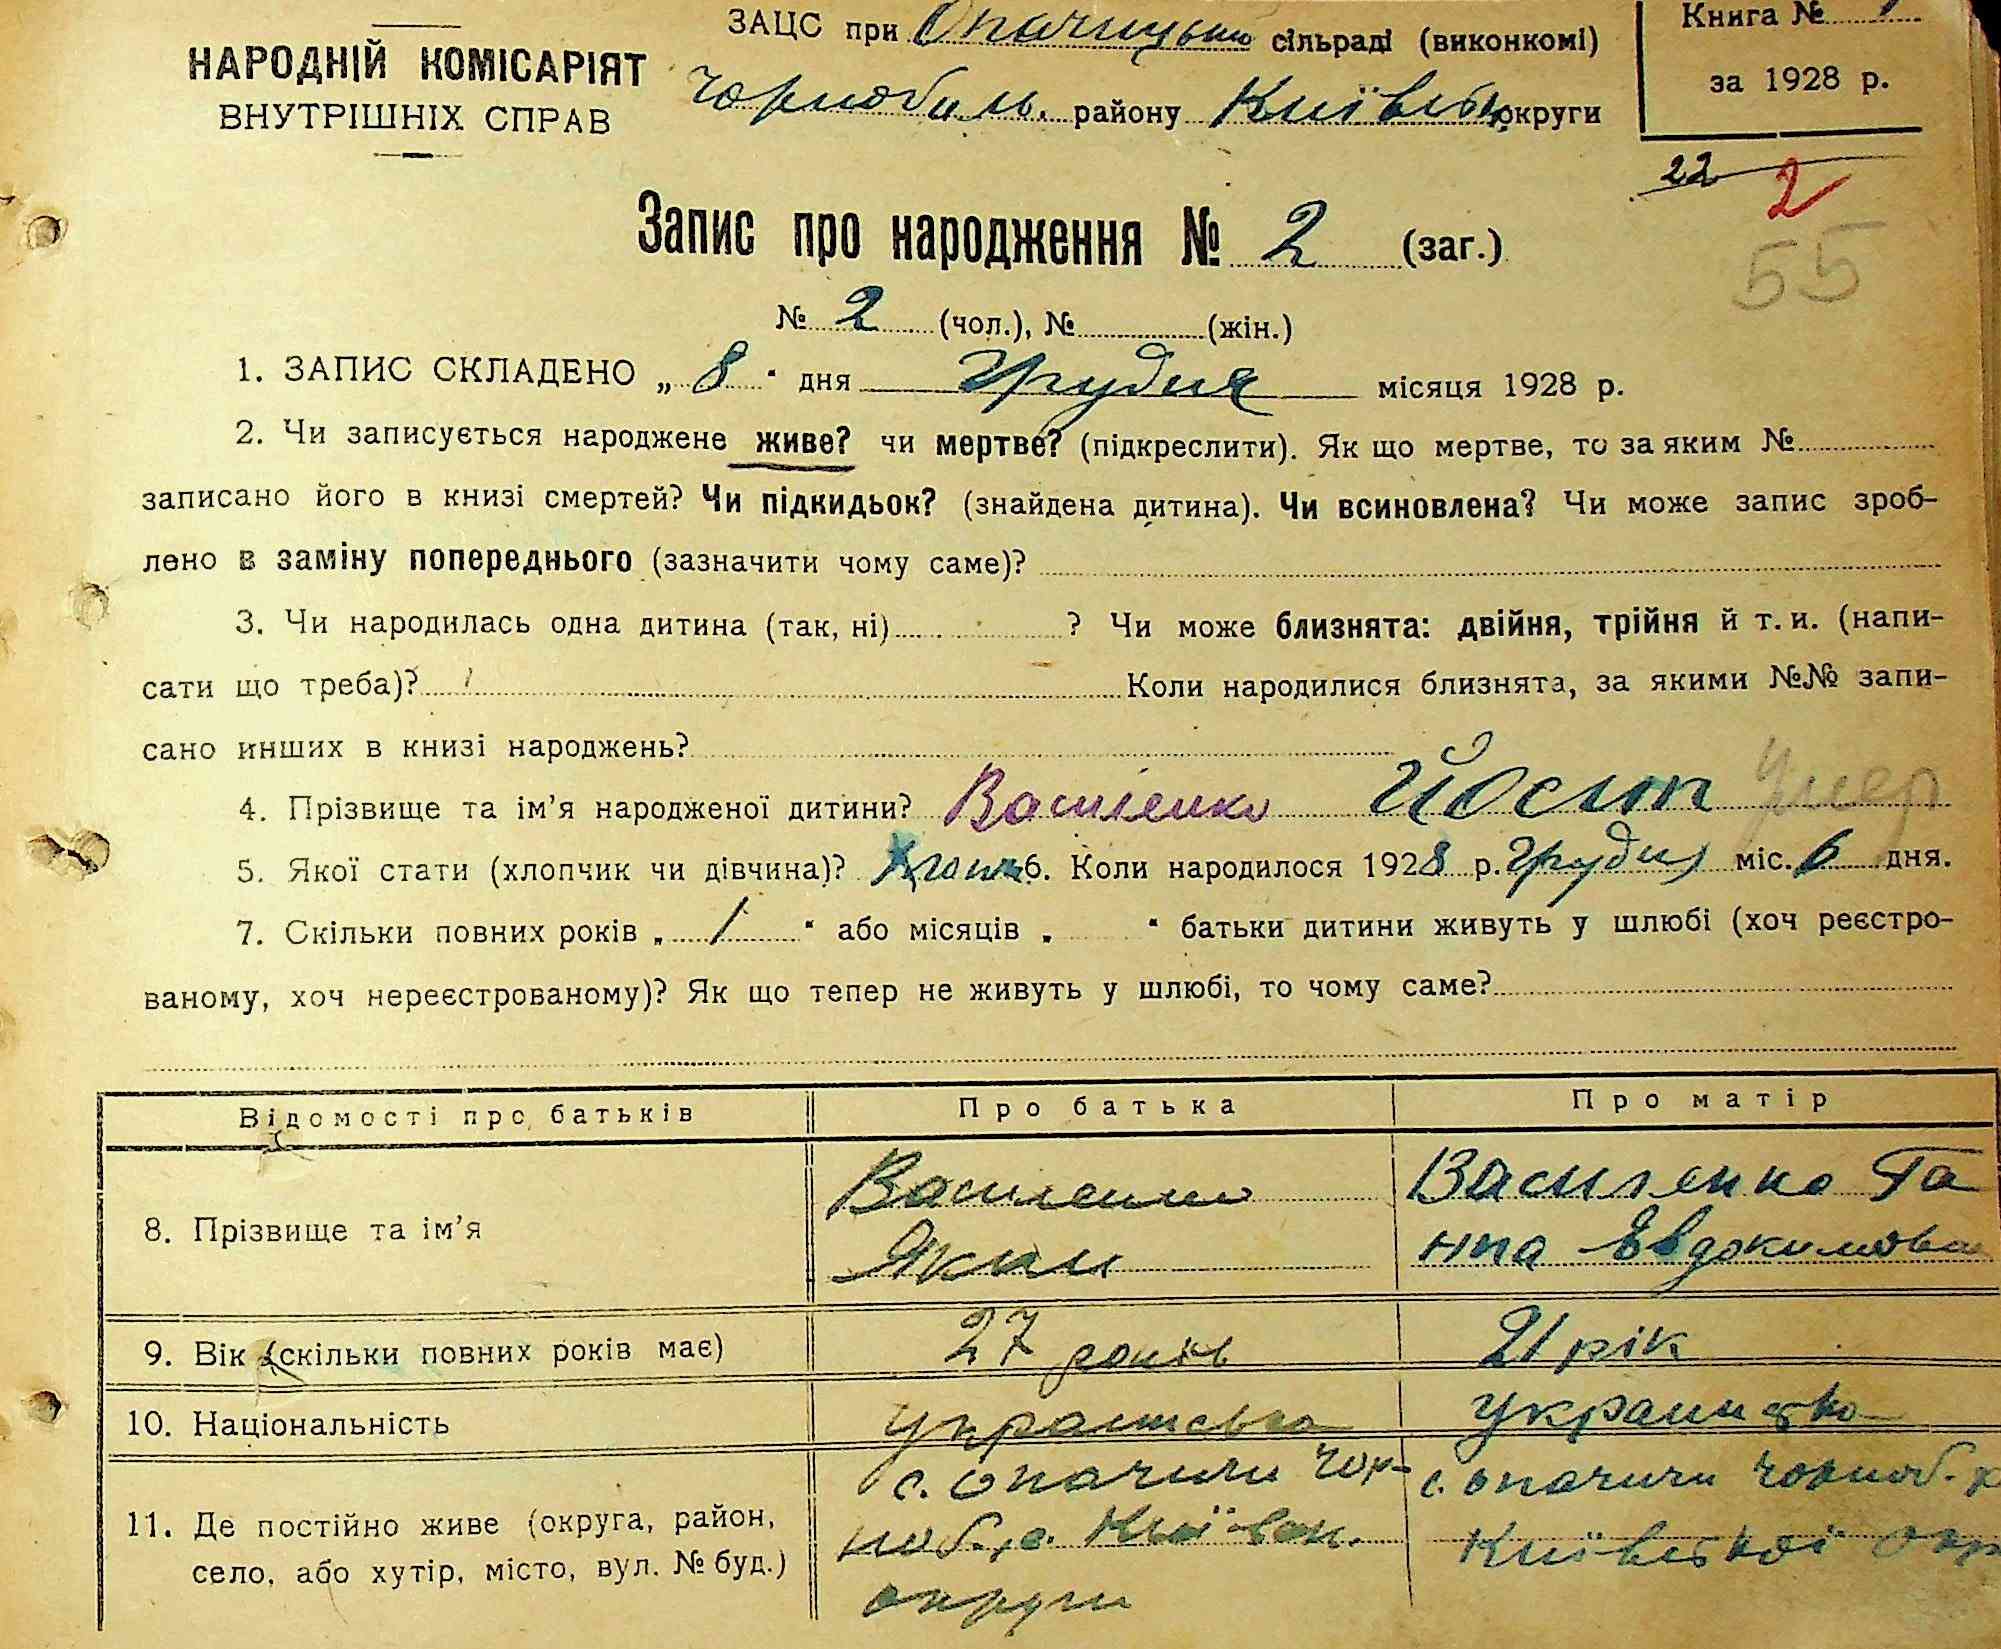 НАРОДНІЙ КОМІСАРІЯТ
ВНУТРІШНІХ СПРАВ
ЗАЦС при Опачицькій сільраді (виконкомі)
Чорнобиль. району Київськ. округи
Книга №
за 1928 р.
22 2
55
Запис про народження № 2 (заг.)
№ 2 (чол.), № (жін.)
1. ЗАПИС СКЛАДЕНО „ 8 “ дня Грудня місяця 1928 р.
2. Чи записується народжене живе? чи мертве? (підкреслити). Як що мертве, то за яким №
записано його в книзі смертей? Чи підкидьок? (знайдена дитина). Чи всиновлена? Чи може запис зроб-
лено в заміну попереднього (зазначити чому саме)?
3. Чи народилась одна дитина (так, ні) ? Чи може близнята: двійня, трійня й т. и. (напи-
сати що треба)? Коли народилися близнята, за якими №№ запи-
сано инших в книзі народжень?
4. Прізвище та ім’я народженої дитини? Василенко Йосип Умер
5. Якої стати (хлопчик чи дівчина)? Хлопч 6. Коли народилося 1928 р. Грудня міс. 6 дня.
7. Скільки повних років „ 1 “ або місяців „ “ батьки дитини живуть у шлюбі (хоч реєстро-
ваному, хоч нереєстрованому)? Як що тепер не живуть у шлюбі, то чому саме?
Відомості про батьків Про батька Про матір
8. Прізвище та ім’я
Василенко
Яким
Василенко Га
нна Евдокимовна
9. Вік (скільки повних років має) 27 років 21 рік
10. Національність українська українська
11. Де постійно живе (округа, район,
село, або хутір, місто, вул. № буд.)
с. Опачичи Чор-
ноб. р. Київськ.
округи
с. Опачичи Чорноб. р
Київської окр